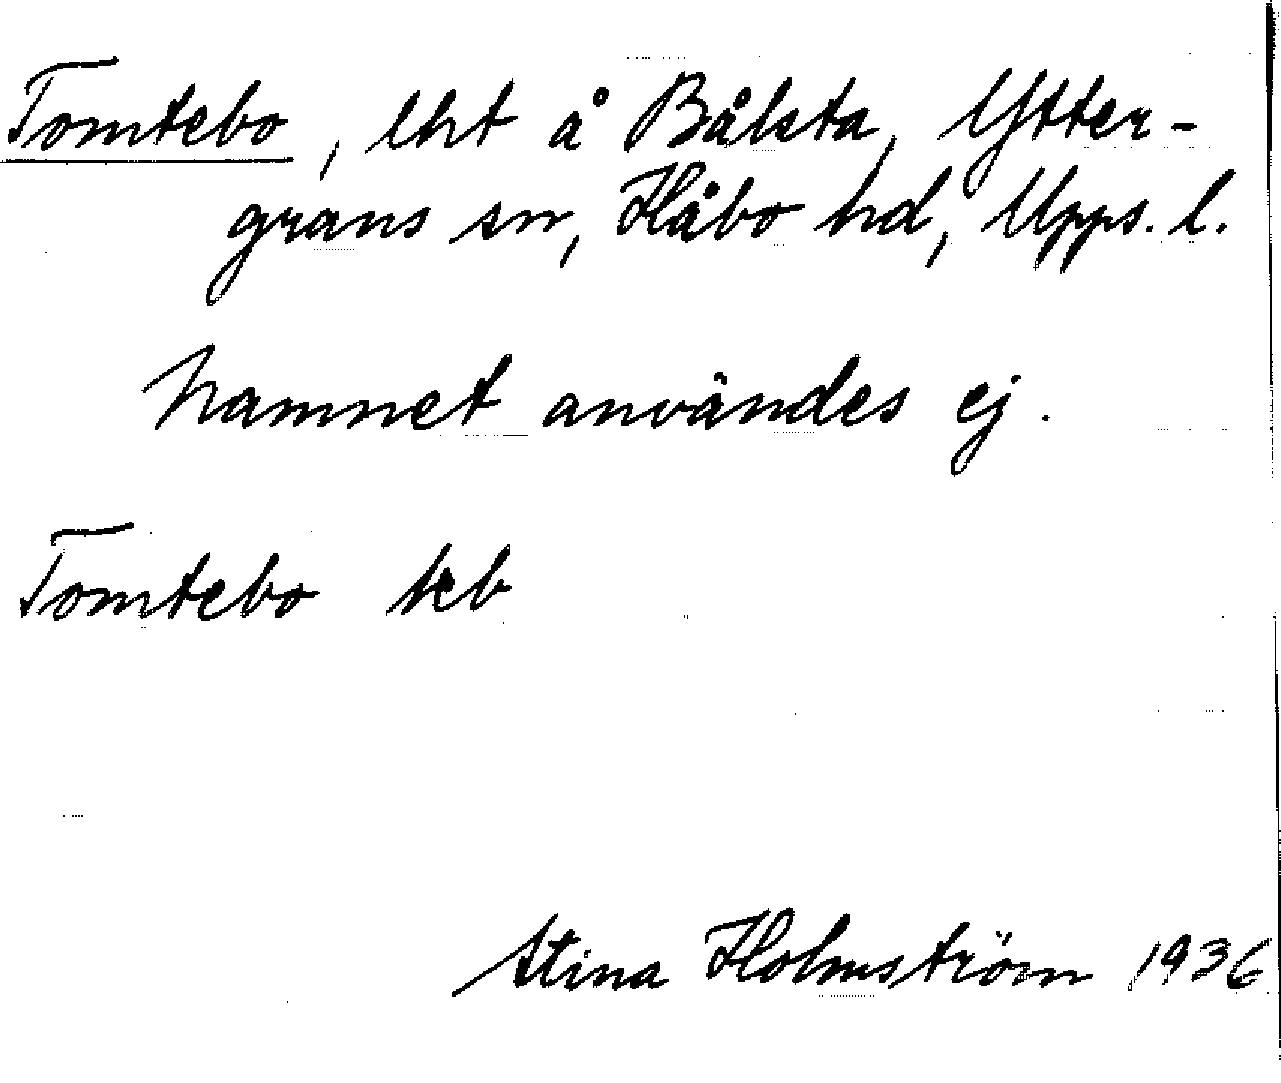 Tomtebo, lht å Bålsta, Ytter-
grans sn, Håbo hd, Upps. l.
Namnet användes ej.
Tomtebo keb
Stina Holmström 1936